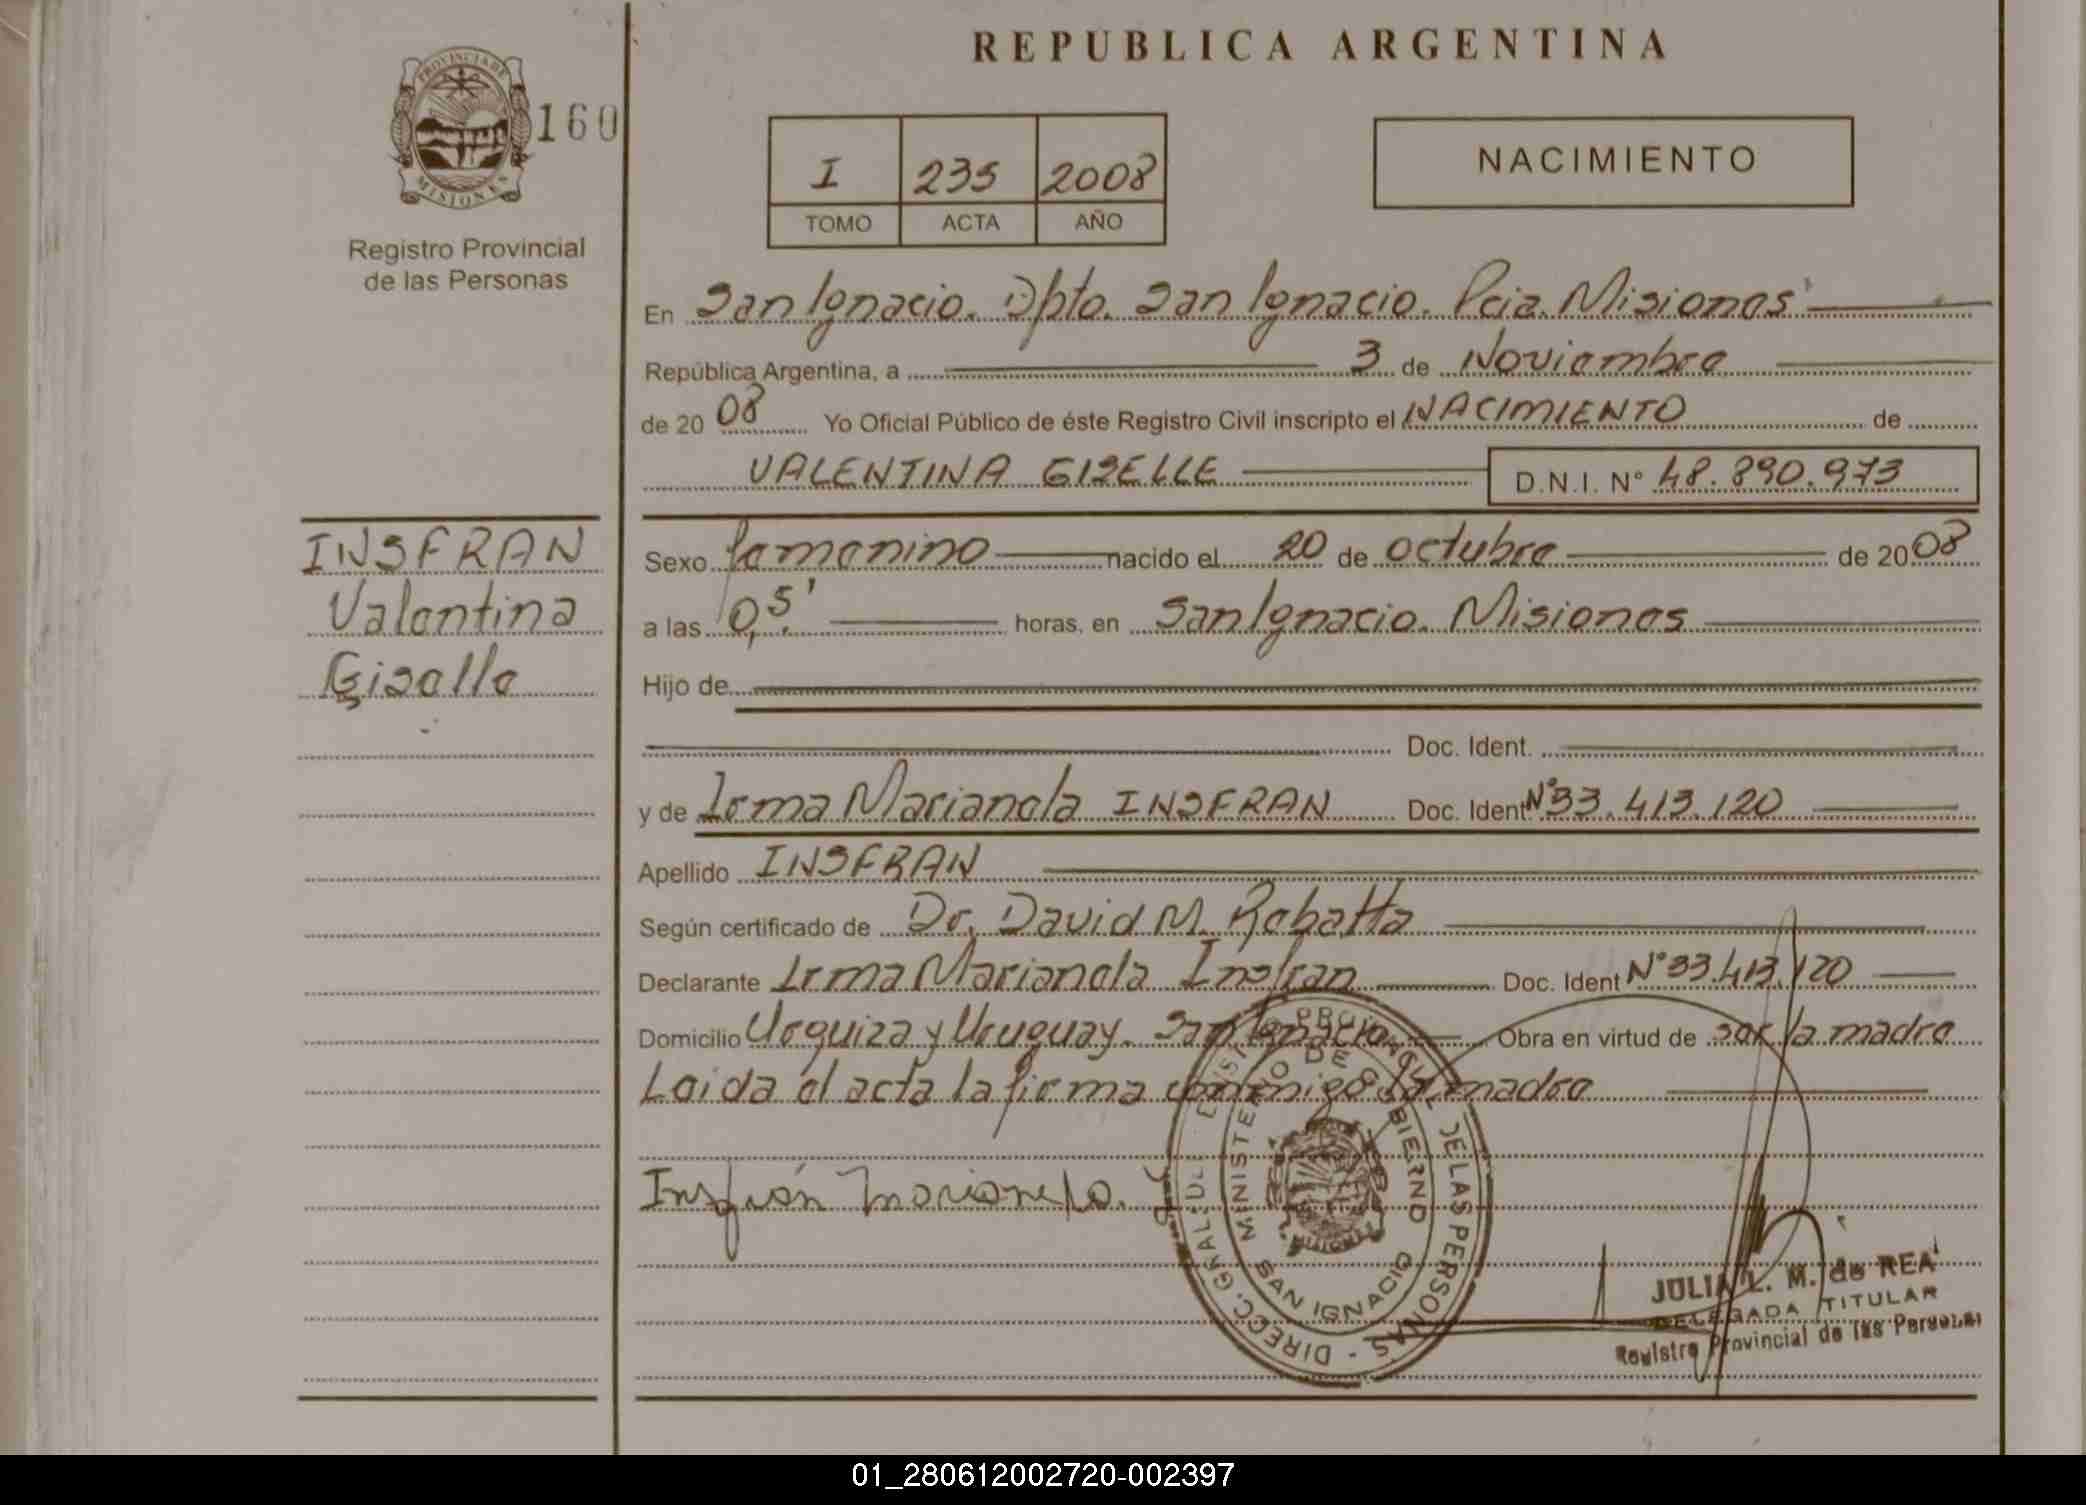 REPUBLICA ARGENTINA
PROVINCIA DE
MISIONES
160
Registro Provincial
de las Personas
I 235 2008
TOMO ACTA AÑO
NACIMIENTO
En San Ignacio. Dpto. San Ignacio. Pcia. Misiones
República Argentina, a 3 de Noviembre
de 2008 Yo Oficial Público de éste Registro Civil inscripto el NACIMIENTO de
VALENTINA GISELLE D.N.I. N° 48.890.973
INSFRAN
Valentina
Giselle
Sexo femenino nacido el 20 de octubre de 2008
a las 0,5' horas, en San Ignacio. Misiones
Hijo de
Doc. Ident.
y de Irma Marianela INSFRAN Doc. Ident N° 33.413.120
Apellido INSFRAN
Según certificado de Dr. David M. Rebatta
Declarante Irma Marianela Insfran Doc. Ident N° 33.413.120
Domicilio Urquiza y Uruguay. San Ignacio Obra en virtud de ser la madre
Leida el acta la firma conmigo la madre
Insfrán Marianela.
DIRECC. GRAL. DEL REGISTRO PROVINCIAL DE LAS PERSONAS
MINISTERIO DE GOBIERNO
SAN IGNACIO
MISIONES
JULIA L. M. de REA
DELEGADA TITULAR
Registro Provincial de las Personas
01_280612002720-002397